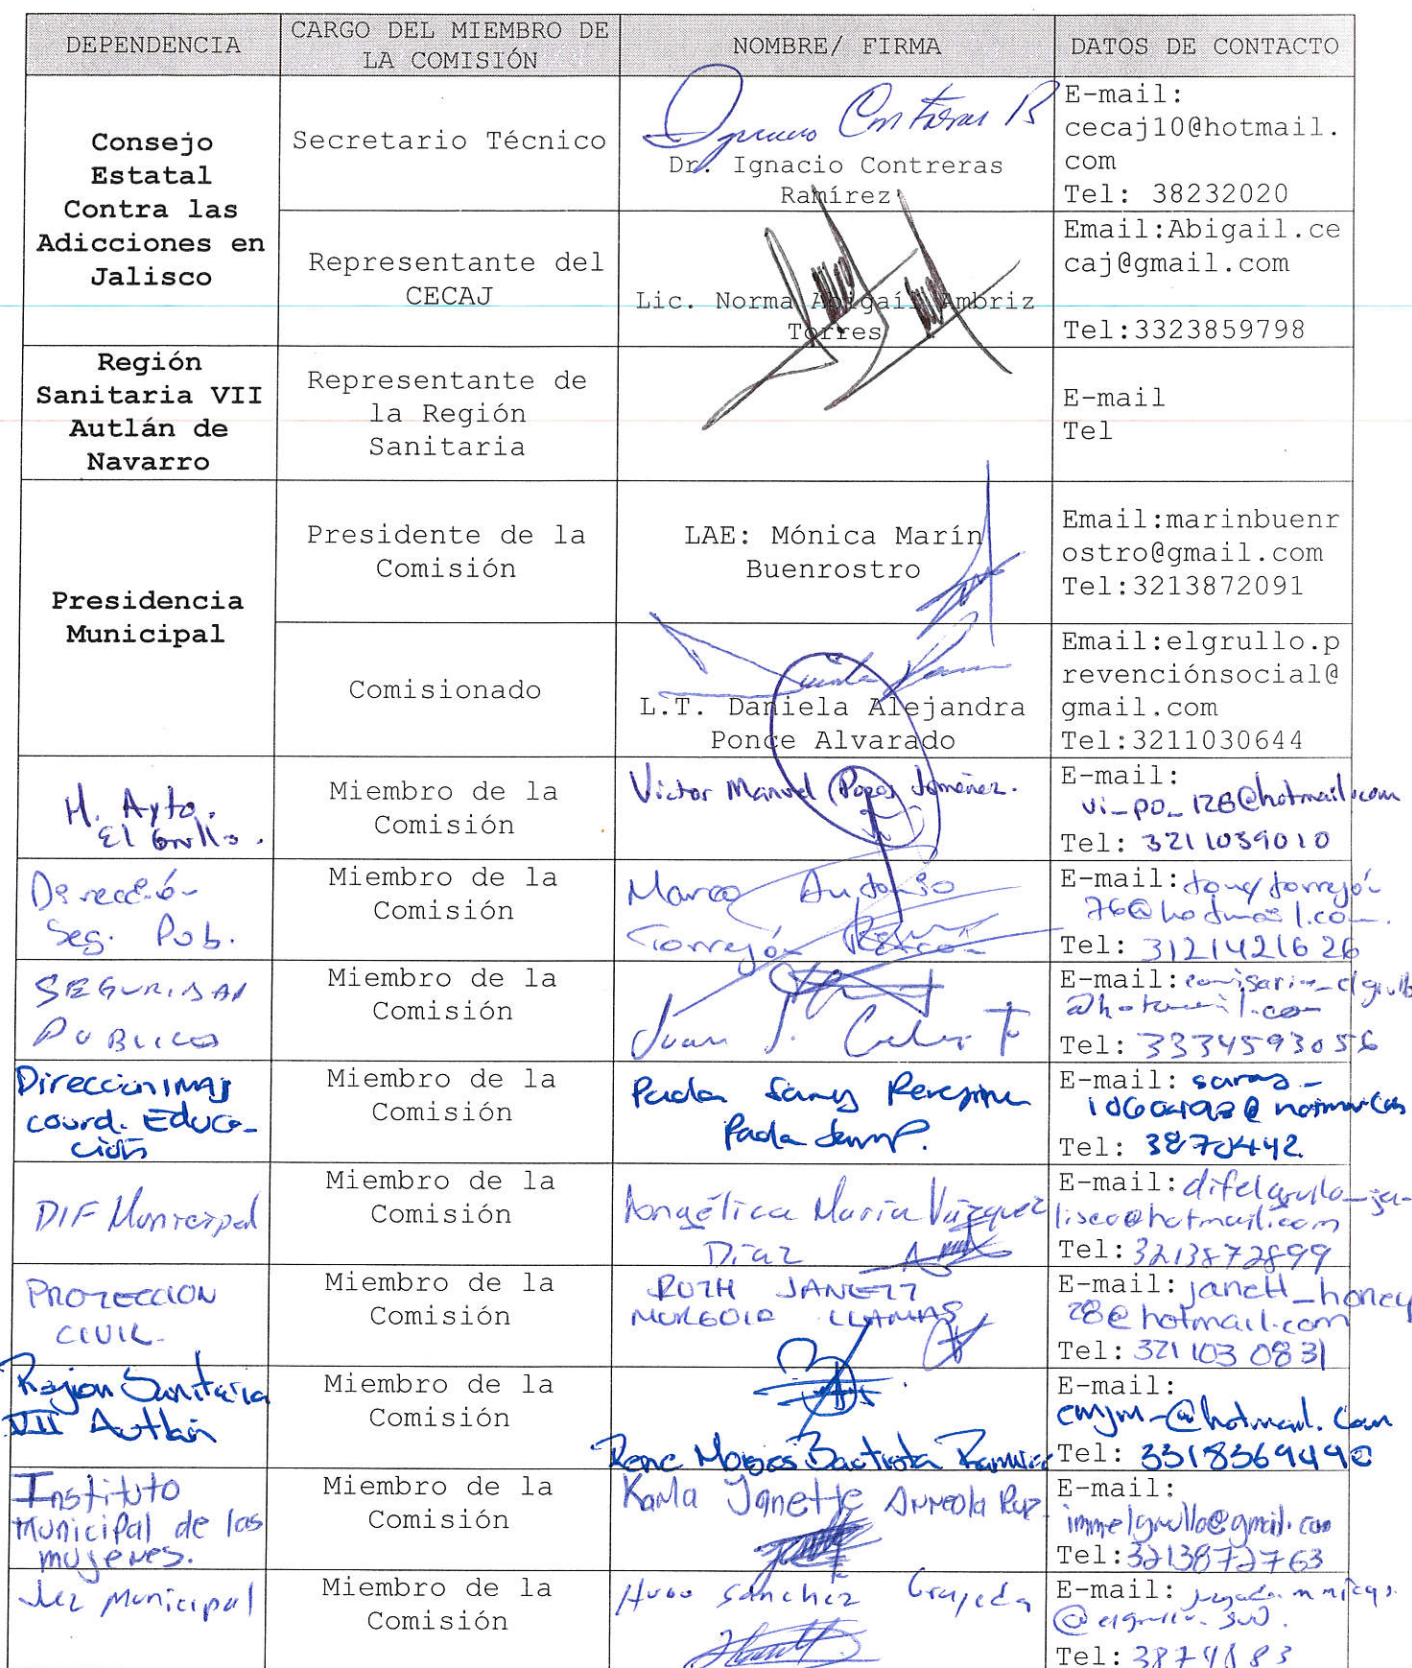 DEPENDENCIA
CARGO DEL MIEMBRO DE
LA COMISIÓN
NOMBRE/ FIRMA
DATOS DE CONTACTO
Consejo
Estatal
Contra las
Adicciones en
Jalisco
Secretario Técnico
Ignacio Contreras R
Dr. Ignacio Contreras
Ramírez
E-mail:
cecaj10@hotmail.
com
Tel: 38232020
Representante del
CECAJ
Lic. Norma Abigaíl Ambriz
Torres
Email:Abigail.ce
caj@gmail.com
Tel:3323859798
Región
Sanitaria VII
Autlán de
Navarro
Representante de
la Región
Sanitaria
E-mail
Tel
Presidencia
Municipal
Presidente de la
Comisión
LAE: Mónica Marín
Buenrostro
Email:marinbuenr
ostro@gmail.com
Tel:3213872091
Comisionado
L.T. Daniela Alejandra
Ponce Alvarado
Email:elgrullo.p
revenciónsocial@
gmail.com
Tel:3211030644
H. Ayto.
El Grullo.
Miembro de la
Comisión
Victor Manuel Jimenez.
E-mail:
vi_po_128@hotmail.com
Tel: 3211039010
Dirección
Seg. Pub.
Miembro de la
Comisión
Marco Antonio
Torrejón
E-mail: tony torrejón
76@hotmail.com.
Tel: 3121421626
SEGURIDAD
PUBLICA
Miembro de la
Comisión
Juan J.
E-mail: comisaria_elgrullo
@hotmail.com
Tel: 3334593056
Dirección IMAJ
coord. Educa-
ción
Miembro de la
Comisión
Paola
Paola
E-mail:
Tel: 3870442
DIF Municipal
Miembro de la
Comisión
Angélica María Vázquez
Díaz
E-mail: difelgrullo_ja-
lisco@hotmail.com
Tel: 3213872899
PROTECCION
CIVIL
Miembro de la
Comisión
RUTH JANETT
LLAMAS
E-mail: janett_honey
28@hotmail.com
Tel: 321 103 0831
Región Sanitaria
VII Autlán
Miembro de la
Comisión
Rene Moises Bautista Ramirez
E-mail:
emjm-@hotmail.com
Tel: 3318369490
Instituto
Municipal de las
mujeres.
Miembro de la
Comisión
Karla Janette Arreola
E-mail:
immelgrullo@gmail.com
Tel:3213872763
Juez Municipal
Miembro de la
Comisión
Hugo Sánchez Grajeda
E-mail:
Tel: